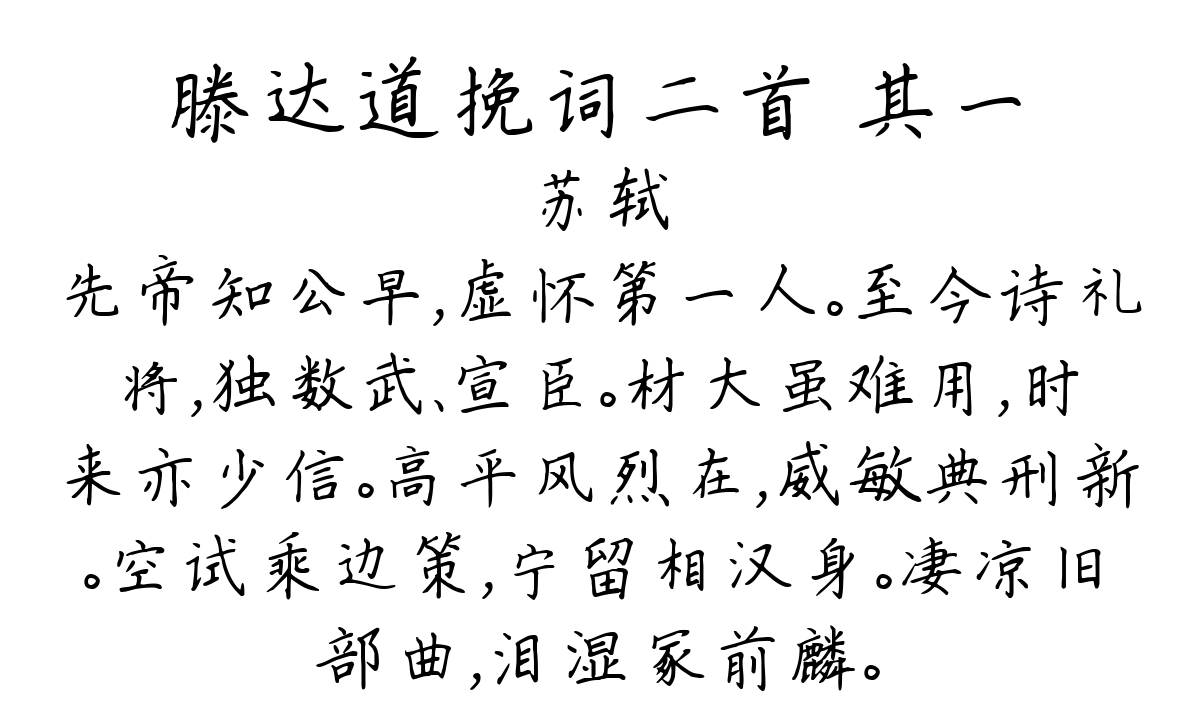 滕达道挽词二首 其一
苏轼
先帝知公早,虚怀第一人。至今诗礼
将,独数武、宣臣。材大虽难用,时
来亦少信。高平风烈在,威敏典刑新
。空试乘边策,宁留相汉身。凄凉旧
部曲,泪湿冢前麟。